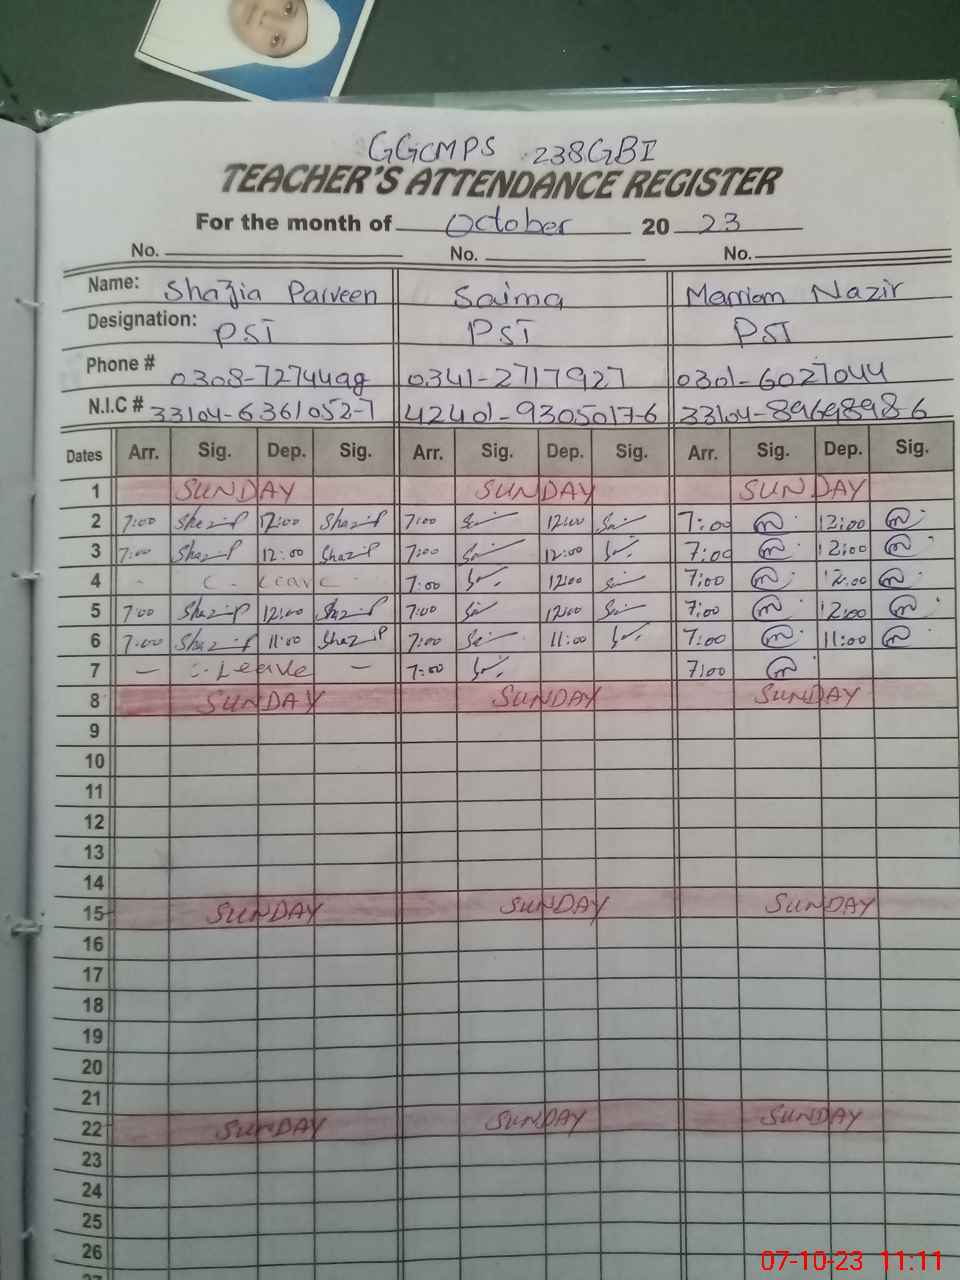 GGCMPS 238GBI
TEACHER'S ATTENDANCE REGISTER
For the month of October 20 23
No. No. No.
Name: Shazia Parveen Saima Marriam Nazir
Designation: PST PST PST
Phone # 0308-7274499 0341-2717927 0301-6027044
N.I.C # 33104-6361052-7 42401-9305017-6 33104-8969898-6
Dates Arr. Sig. Dep. Sig. Arr. Sig. Dep. Sig. Arr. Sig. Dep. Sig.
1 SUNDAY SUNDAY SUNDAY
2 7:00 12:00 7:00 12:00 7:00 12:00
3 7:00 12:00 7:00 12:00 7:00 12:00
4 - C. Leave - 7:00 12:00 7:00 12:00
5 7:00 12:00 7:00 12:00 7:00 12:00
6 7:00 11:00 7:00 11:00 7:00 11:00
7 — C. Leave — 7:00 7:00
8 SUNDAY SUNDAY SUNDAY
9
10
11
12
13
14
15 SUNDAY SUNDAY SUNDAY
16
17
18
19
20
21
22 SUNDAY SUNDAY SUNDAY
23
24
25
26
27
07-10-23 11:11